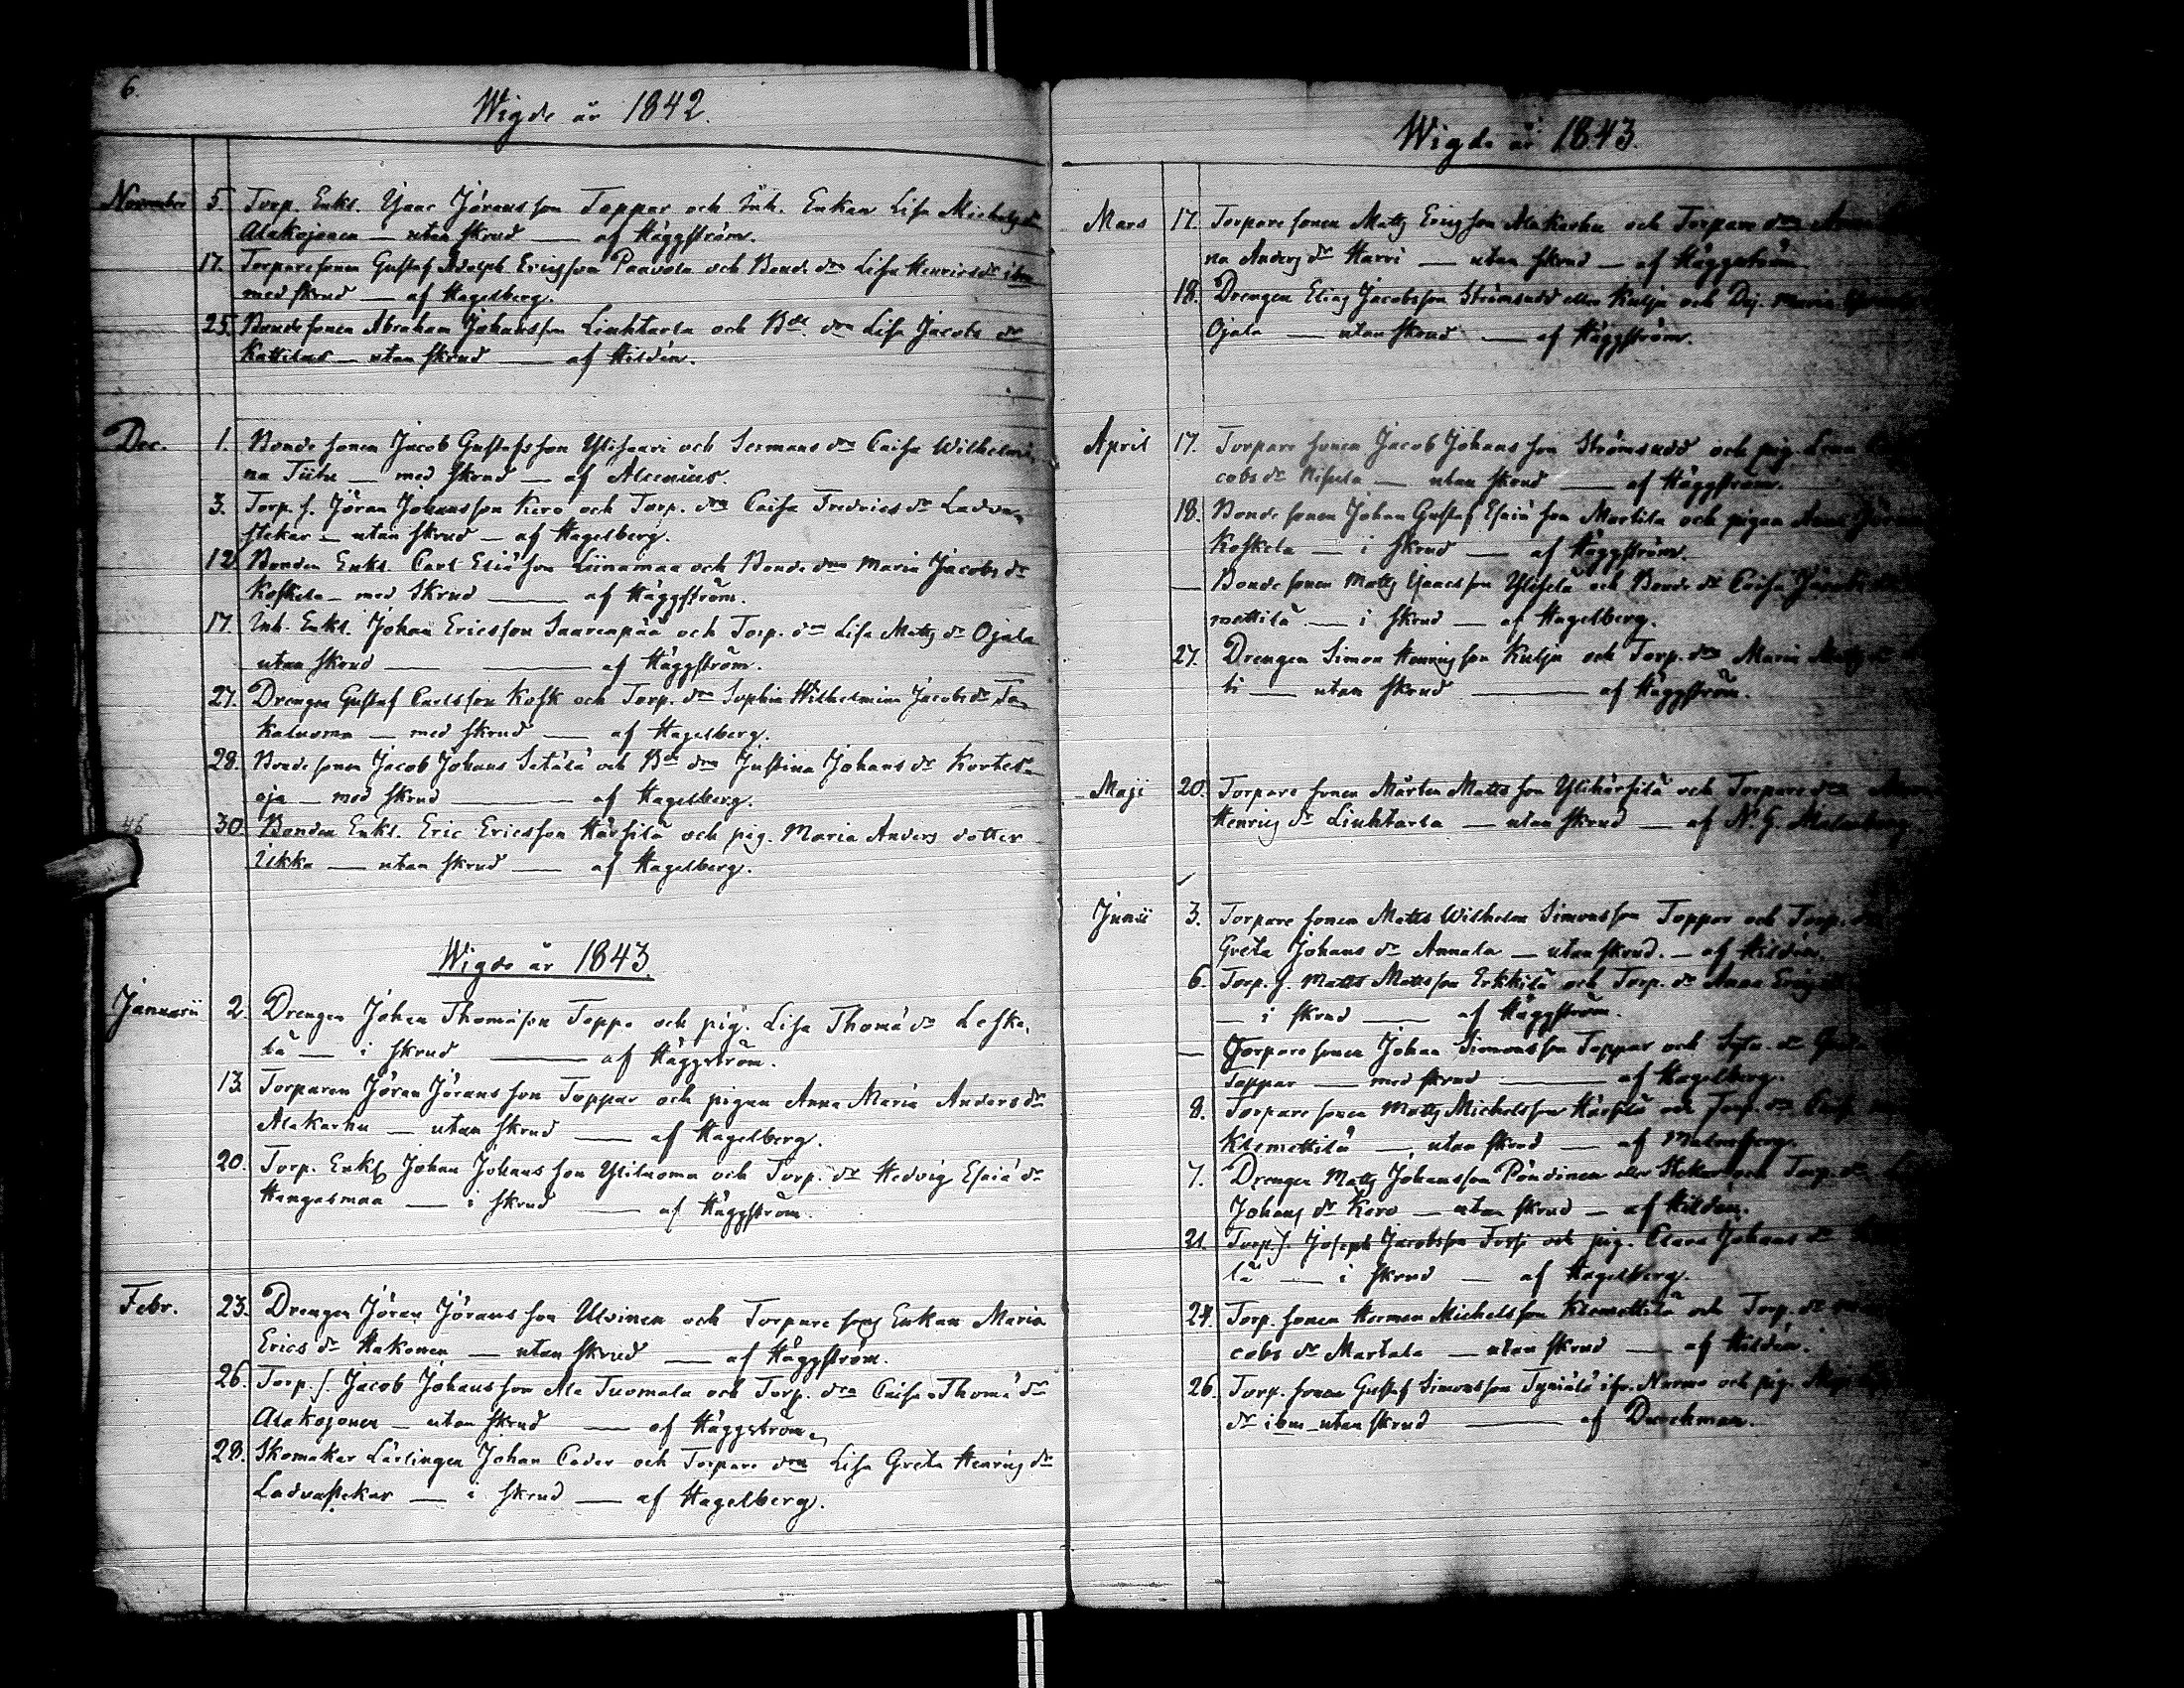 6.
Wigde år 1842.
November 5. Torp. Enkl. Isaac Jöransson Toppar och Inh. Enkan Lisa Michelsdr
Alakojonen — utan skrud — af Häggström.
17. Torparesonen Gustaf Adolph Ericsson Paavola och Bonde dn Lisa Henricsdr ibm
med skrud — af Hagelberg.
25. Bondesonen Abraham Johansson Liuhtarla och Bde dn Lisa Jacobs dr
Kattilus — utan skrud — af Hildén.
Dec. 1. Bonde sonen Jacob Gustafsson Ylisaari och Sexmans dn Caisa Wilhelmi,
na Tiitu — med skrud — af Alcenius.
3. Torp. s. Jöran Johansson Kero och Torp. dn Caisa Fredrics dr Ladva,
stekar — utan skrud — af Hagelberg.
12. Bonden Enkl. Carl Eliæson Liinamaa och Bonde dn Maria Jacobs dr
Koskela — med skrud — af Häggström.
17. Inh. Enkl. Johan Ericsson Saarenpää och Torp. dn Lisa Matts dr Ojala
utan skrud — af Häggström.
27. Drengen Gustaf Carlsson Kosk och Torp. dn Sophia Wilhelmina Jacobs dr
Kaluoma — med skrud — af Hagelberg.
28. Bonde sonen Jacob Johans Setälä och Bde dn Justina Johans dr Kortes,
oja — med skrud — af Hagelberg.
30. Bonden Enkl. Eric Ericsson Härsilä och pig. Maria Anders dotter
Ukka — utan skrud — af Hagelberg.
Wigde år 1843
Januarii 2. Drengen Johan Thomæson Toppo och pig. Lisa Thomæ dr Leske,
lä — i skrud — af Häggström.
13. Torparen Jöran Jöransson Toppar och pigan Anna Maria Anders dr
Alakarhu — utan skrud — af Hagelberg.
20. Torp. Enkl. Johan Johansson Ylituoma och Torp. dr Hedvig Esaiæ dr
Hangasmaa — i skrud — af Häggström.
Febr. 23. Drengen Jöran Jöransson Ulvinen och Torpare sons Enkan Maria
Erics dr Hakonen — utan skrud — af Häggström.
26. Torp. s. Jacob Johansson Ala Tuomala och Torp. dn Caisa Thomæ dr
Alakojonen — utan skrud — af Häggström.
28. Skomakar Lärlingen Johan Ceder och Torpare dn Lisa Greta Henrics dr
Ladvastekar — i skrud — af Hagelberg.
Wigde år 1843.
Mars 17. Torpare sonen Matts Ericsson Alakarhu och Torpare dn
na Anders dr Harri — utan skrud — af Häggström
18. Drengen Elias Jacobsson Strömsudd eller Kulju och Dej. Maria
Ojala — utan skrud — af Häggström.
April 17. Torpare sonen Jacob Johansson Strömsudd och pig. Lena
cobs dr Nisula — utan skrud — af Häggström.
18. Bonde sonen Johan Gustaf Esaiæson Martila och pigan Anna
Koskela — i skrud — af Häggström.
— Bonde sonen Matts Isaacsson Ylisela och Bonde dr Caisa
mettilä — i skrud — af Hagelberg.
27. Drengen Simon Henricsson Kulju och Torp. dn Maria
ti — utan skrud — af Häggström.
Maji 20. Torpare sonen Mårten Mattsson Ylihärsilä och Torpare dn
Henrics dr Liuhtarla — utan skrud — af N. G. Malmberg
Junii 3. Torpare sonen Matts Wilhelm Simonsson Toppar och Torp.
Greta Johans dr Annala — utan skrud. — af Hildén.
6. Torp. s. Matts Mattsson Erkkilä och Torp. dr Anna
— i skrud — af Häggström.
— Torpare sonen Johan Simonsson Toppar och
Toppar — med skrud — af Hagelberg.
8. Torpare sonen Matts Michelsson Härsilä och Torp. dn
Klemettilä — utan skrud — af Malmberg.
7. Drengen Matts Johansson Pöndinen eller Stekar och Torp. dn
Johans dr Kero — utan skrud — af Hildén.
21. Torp. s. Joseph Jacobsson Torsi och pig. Clara Johans dr
lä — i skrud — af Hagelberg.
24. Torp. sonen Herman Michelsson Klemettilä och Torp. dr
cobs dr Martala — utan skrud — af Hildén.
26. Torp. sonen Gustaf Simonsson Tyniälä och pig.
dr ibm utan skrud — af Durchman.